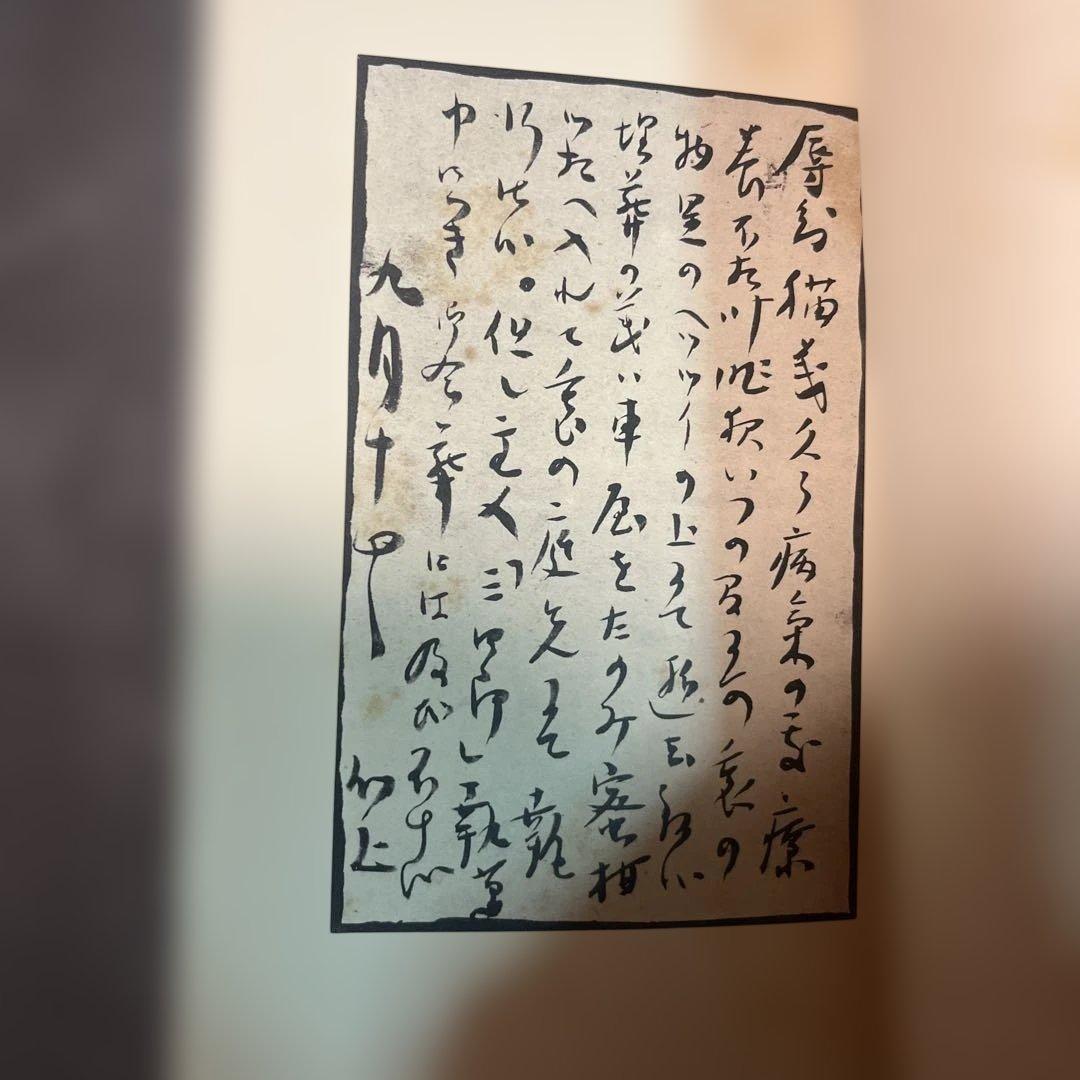 辱知猫義久々病気の処療
養不相叶昨夜いつの間にか裏の
物置のヘッツイの上にて逝去致候
埋葬の義は車屋をたのみ蜜柑
箱へ入れて裏の庭先にて執
行仕候。但し主人「三四郎」執筆
中につき御会葬には及び不申候
九月十四日
以上